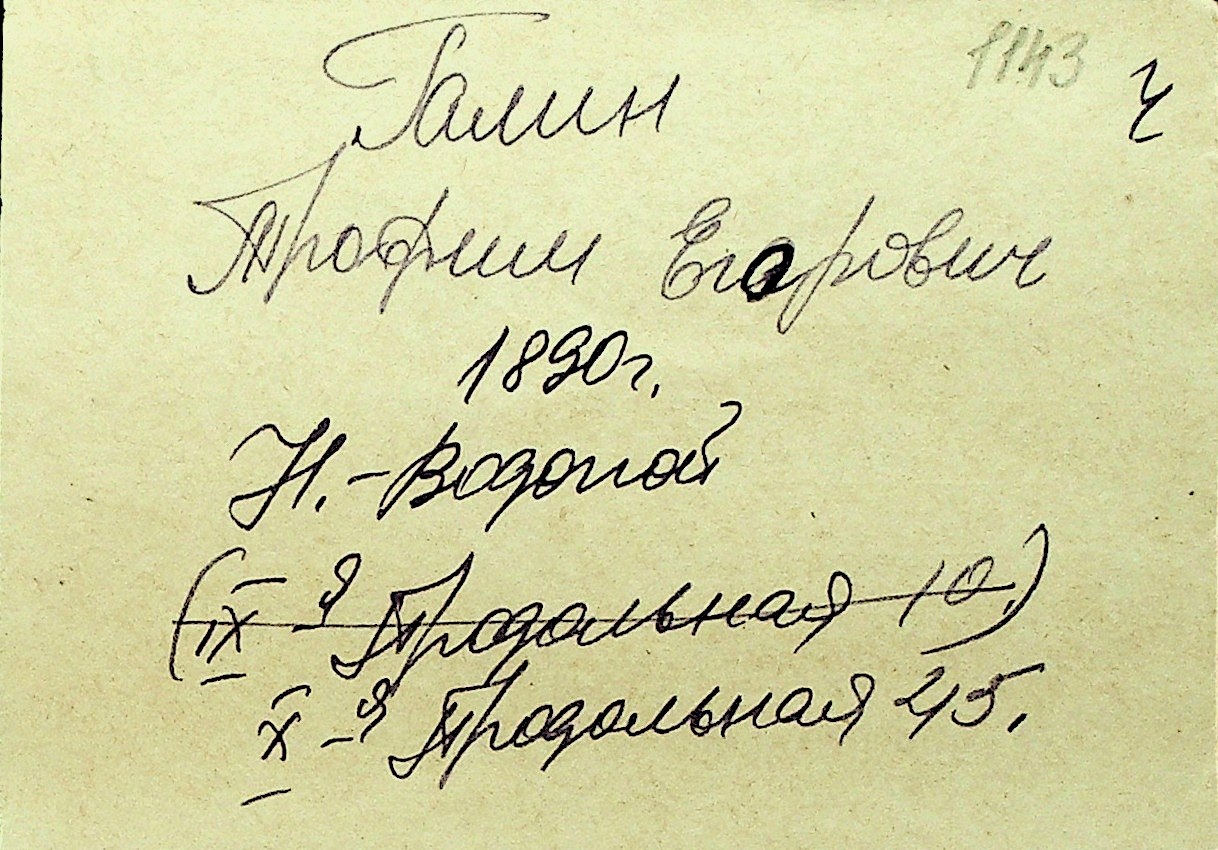 1143 Ч
Галин
Трофим Егорович
1890г.
Н.-Водопой
(IX-я Продольная 10.)
X-я Продольная 45.